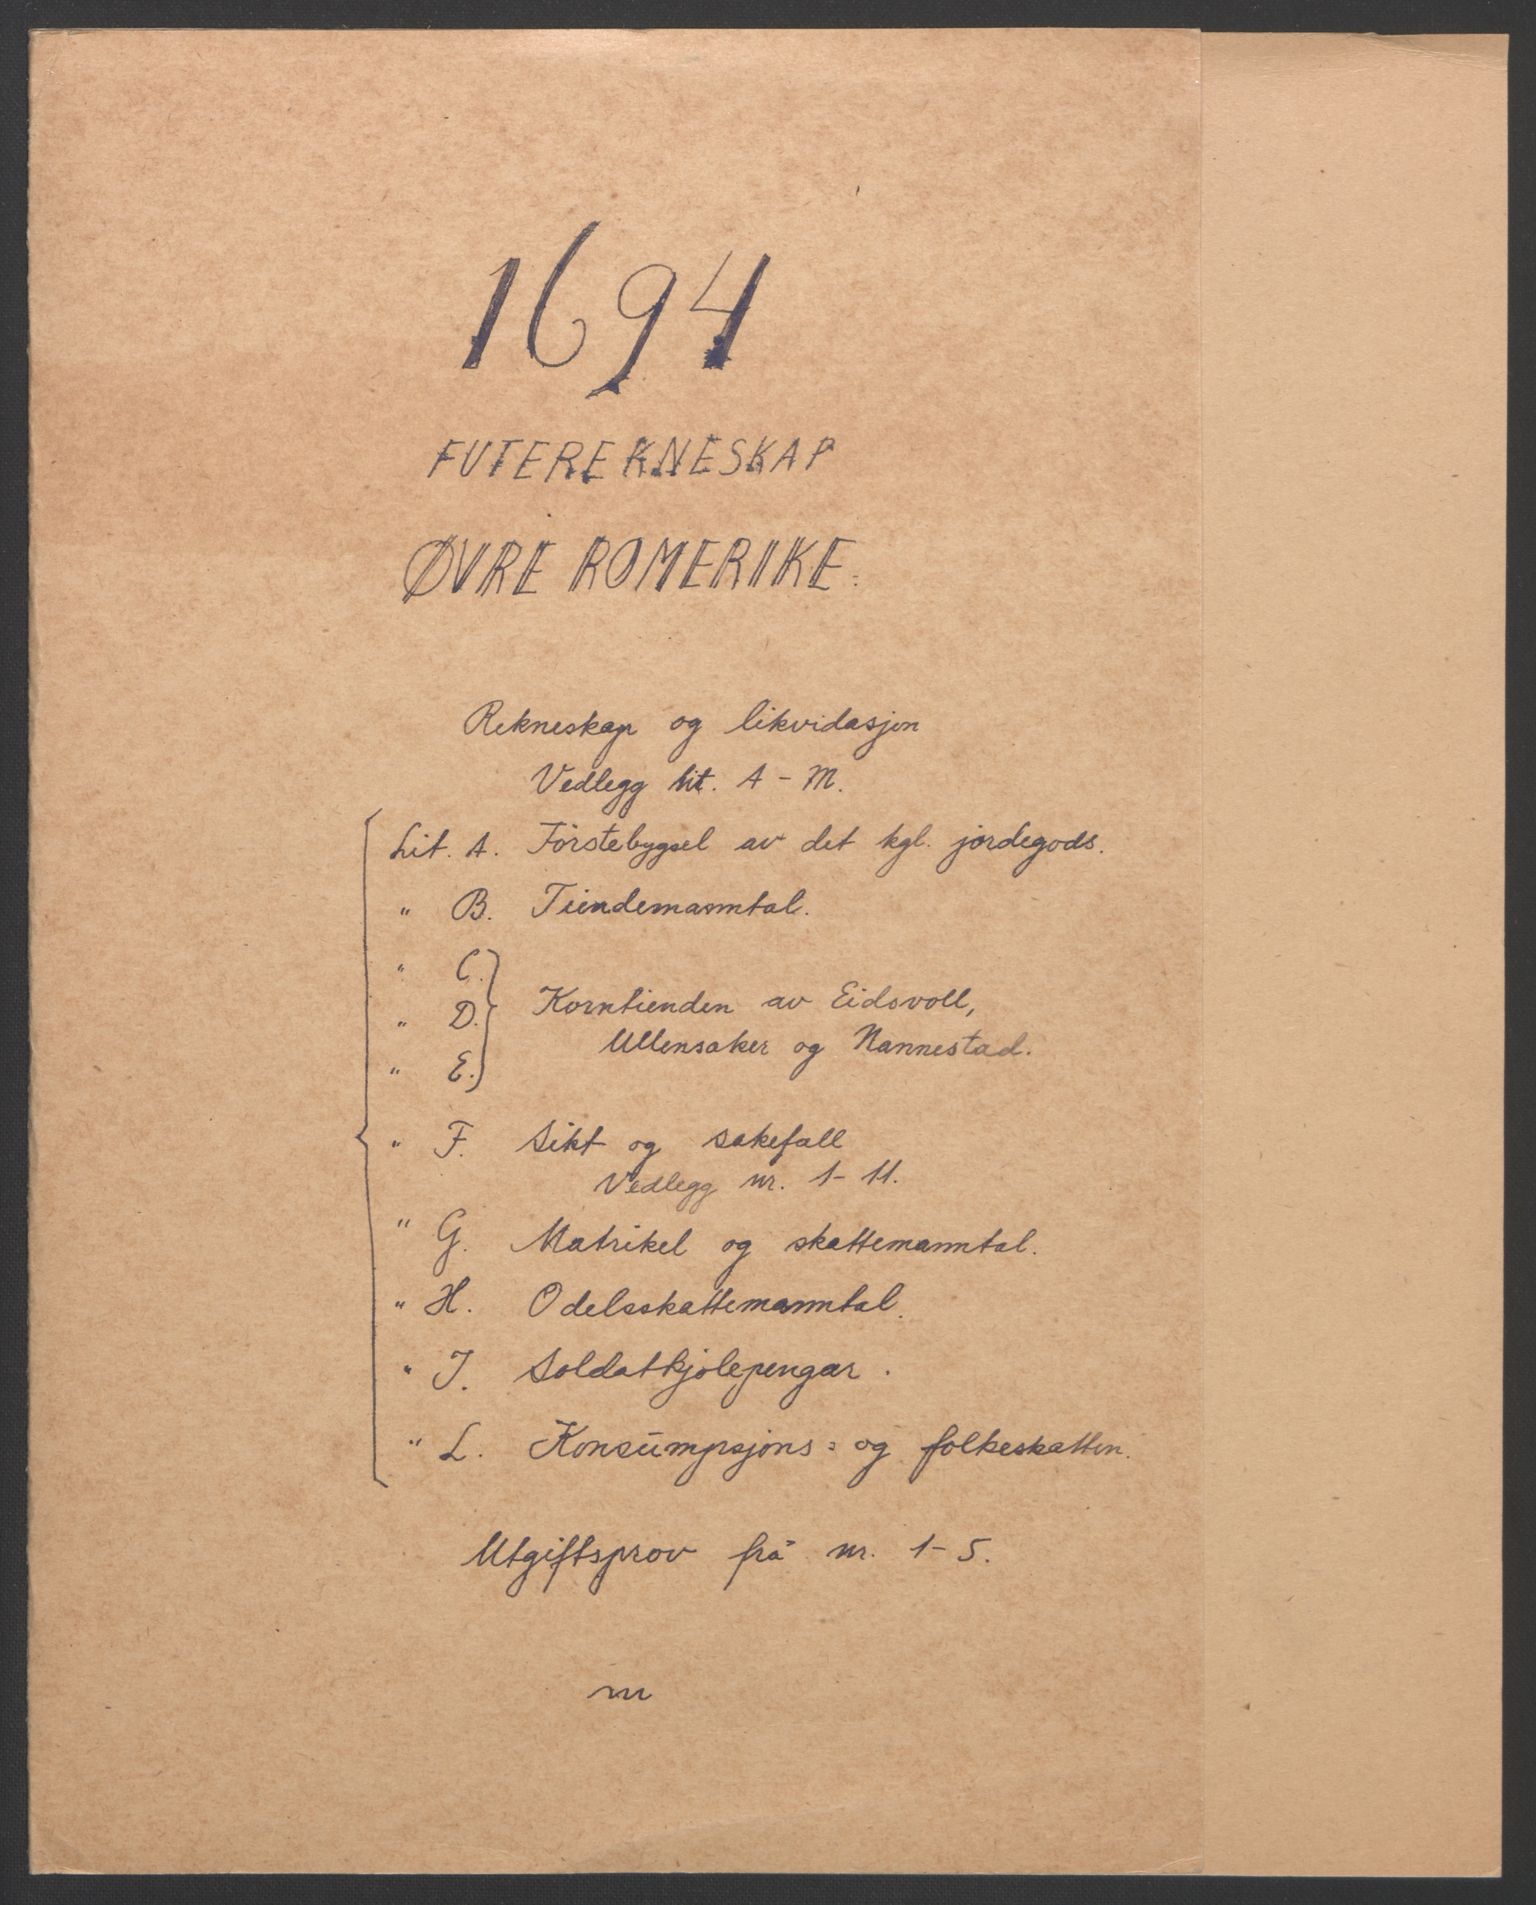 1694
FUTEREKNESKAP
ØVRE ROMERIKE.
Rekneskap og likvidasjon
Vedlegg lit. A - M.
Lit. A. Förstebygsel av det kgl. jordegods.
" B. Tiendemanntal.
" C.
" D.
" E.
Korntienden av Eidsvoll,
Ullensaker og Nannestad.
" F. Sikt og sakefall
Vedlegg nr. 1 - 11.
" G. Matrikel og skattemanntal.
" H. Odelsskattemanntal.
" J. Soldatkjolepengar.
" L. Konsumpsjons= og folkeskatten.
Utgiftsprov frå nr. 1 - 5.